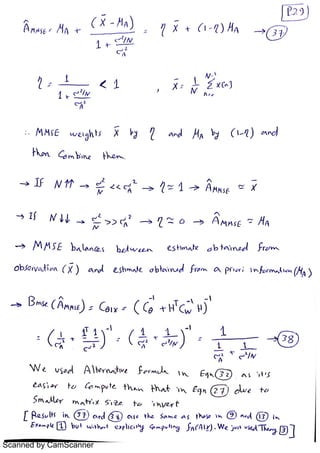 P29
Â_MMSE = μ_A + (x̄ - μ_A) / (1 + (σ²/N)/σ_A²) = η x̄ + (1-η) μ_A → (37)
η = 1 / (1 + (σ²/N)/σ_A²) < 1 , x̄ = 1/N Σ_{n=0}^{N-1} x[n]
∴ MMSE weights x̄ by η and μ_A by (1-η) and
then Combine them.
→ If N↑↑ → σ²/N << σ_A² → η ≈ 1 → Â_MMSE ≈ x̄
→ If N↓↓ → σ²/N >> σ_A² → η ≈ 0 → Â_MMSE ≈ μ_A
→ MMSE balances between estimate obtained from
observation (x̄) and estimate obtained from a priori information (μ_A)
→ Bmse(Â_MMSE) = C_θ|x = (C_θ^-1 + H^T C_w^-1 H)^-1
= (1/σ_A² + 1^T 1/σ²)^-1 = (1/σ_A² + 1/(σ²/N))^-1 = 1 / (1/σ_A² + 1/(σ²/N)) → (38)
We used Alternative formula in Eqn (32) as it's
easier to compute than that in Eqn (27) due to
smaller matrix size to invert
[Results in (37) and (38) are the same as those in (9) and (13) in
Example [1] but without explicitly computing f_A(A|x). We just used Theory [3]]
Scanned by CamScanner